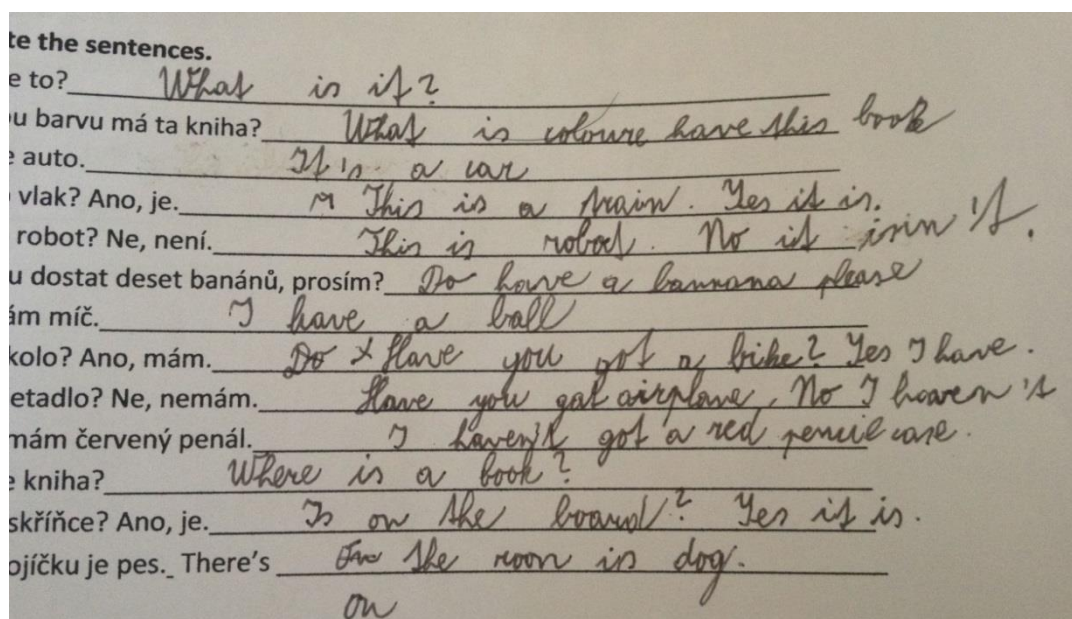 te the sentences.
e to? What is it?
u barvu má ta kniha? What is coloure have this book
e auto. It's a car
vlak? Ano, je. This is a train. Yes it is.
robot? Ne, není. This is robot. No it isin't.
u dostat deset banánů, prosím? Do have a bannana please
ám míč. I have a ball
kolo? Ano, mám. Do Have you got a bike? Yes I have.
etadlo? Ne, nemám. Have you gat airplane. No I haven't
mám červený penál. I haven't got a red pencil case.
e kniha? Where is a book?
skříňce? Ano, je. Is on the board? Yes it is.
ojíčku je pes. There's the room is dog.
on